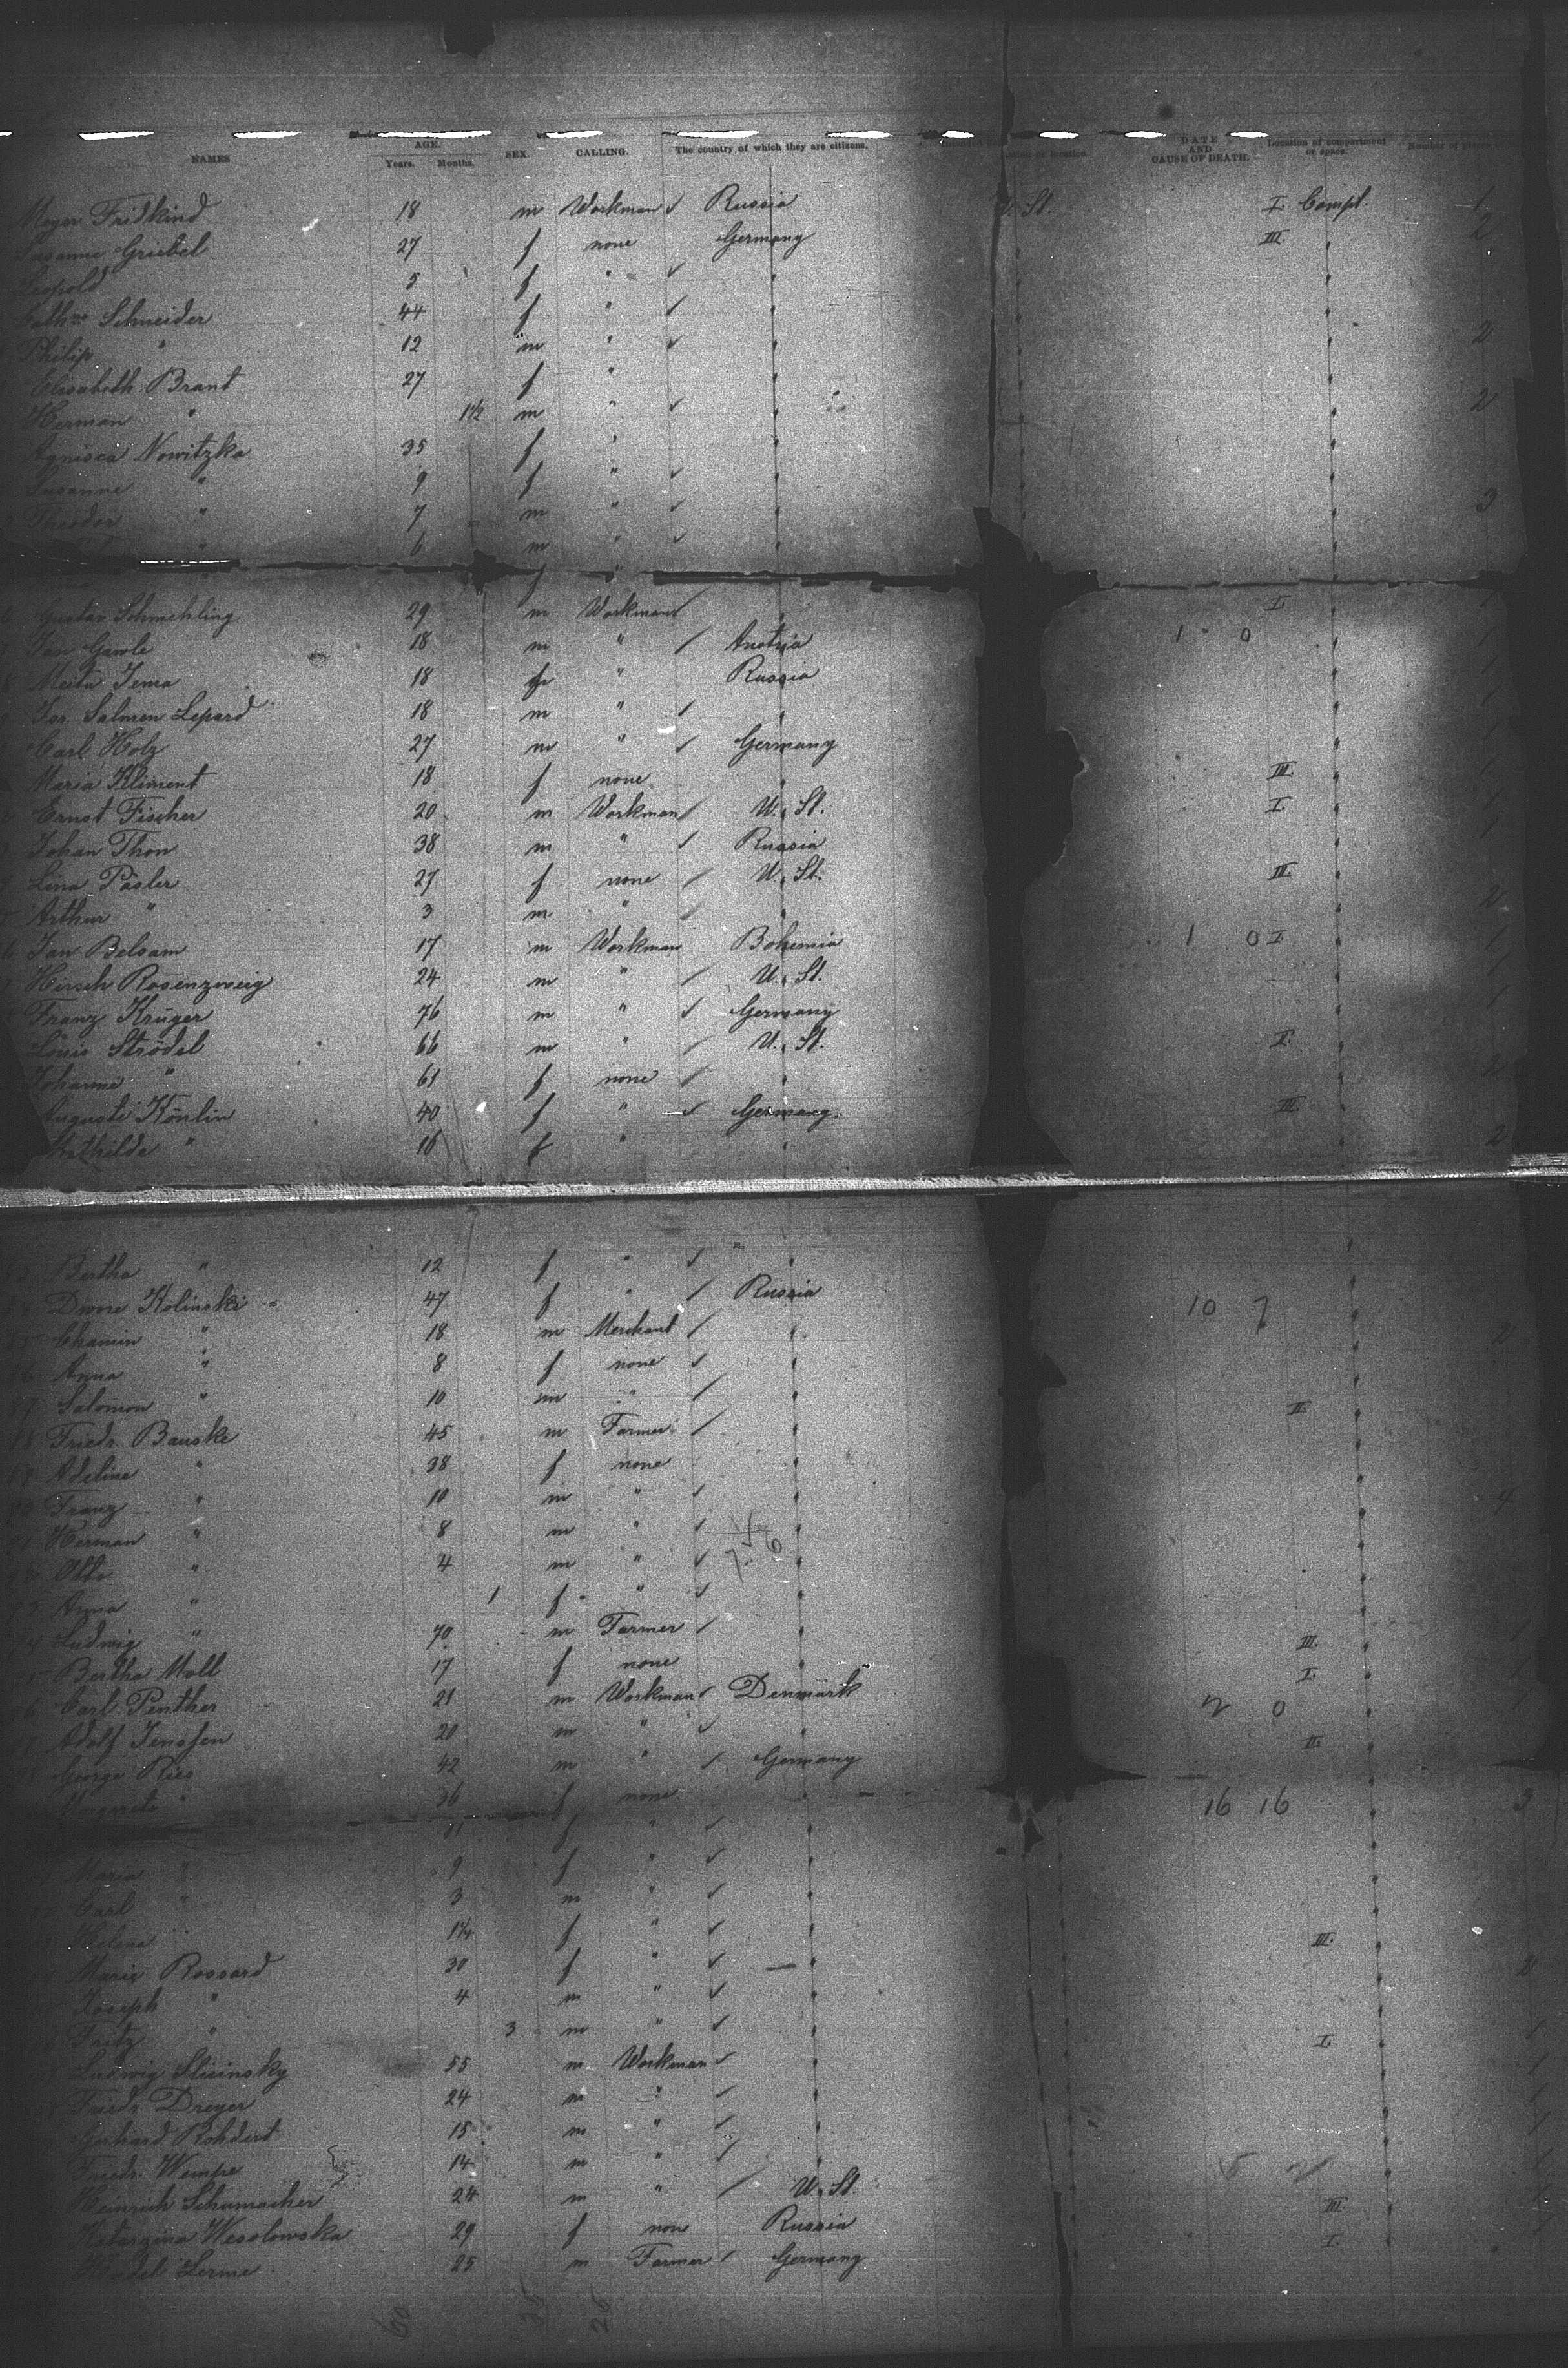 NAMES AGE. Years. Months. SEX. CALLING. The country of which they are citizens. location. DATE AND CAUSE OF DEATH. Location of compartment or space. Number of pieces
Meyer Fridkind 18 m Workman Russia St. I Compt. 1
Susanne Griebel 27 f none Germany III. 2
Leopold 5 f "
Cathne Schneider 44 f "
Philip " 12 m " 2
Elisabeth Brant 27 f "
Herman " 1½ m " 2
Nowitzka 35 f "
Susanne " 9 f "
Theodor " 7 m " 3
" 6 m "
f "
Gustav Schmehling 29 m Workman I.
Jan Gawle 18 m " Austria 1 0
Meita Jema 18 " Russia
Jos. Salmen Lepard 18 m "
Carl Holz 27 m " Germany
Maria Kliment 18 f none III.
Ernst Fischer 20 m Workman U. St. I.
Johan Thon 38 m " Russia
Lina Päsler 27 f none U. St. III.
Arthur " 3 m " 2
Jan Belsam 17 m Workman Bohemia 1 0 I.
Hirsch Rosenzweig 24 m " U. St.
Franz Krüger 76 m " Germany
Louis Strödel 66 m " U. St. II.
Johanne " 61 f none 2
Auguste Könlin 40 f " Germany. III.
Mathilde " 16 f " 2
Bertha " 12 f "
Dwore Kolinski 47 f " Russia 10 7
Chamin " 18 m Merchant 2
Anna " 8 f none
Salomon " 10 m "
Friedr. Bauske 45 m Farmer II.
Adeline " 38 f none
Franz " 10 m " 4
Herman " 8 m "
Otto " 4 m "
Anna " 1 f "
Ludwig " 70 m Farmer
Bertha Moll 17 f none III.
Carl Penther 21 m Workman Denmark I.
Adolf Jenssen 20 m " 2 0
George Ries 42 m " Germany II.
Margarete " 36 f none
11 f " 16 16 3
Maria " 9 f "
Carl " 3 m "
Helena " 1¼ f "
Marie Rossard 30 f " III.
Joseph " 4 m " 2
Fritz " 3 m "
Ludwig Slisinsky 55 m Workman I.
Friedr. Dreyer 24 m "
Gerhard Rohdert 15 m "
Friedr. Wempe 14 m "
Heinrich Schumacher 24 m " U. St.
Wesolowska 29 f none Russia III.
Lerme 25 m Farmer Germany I.